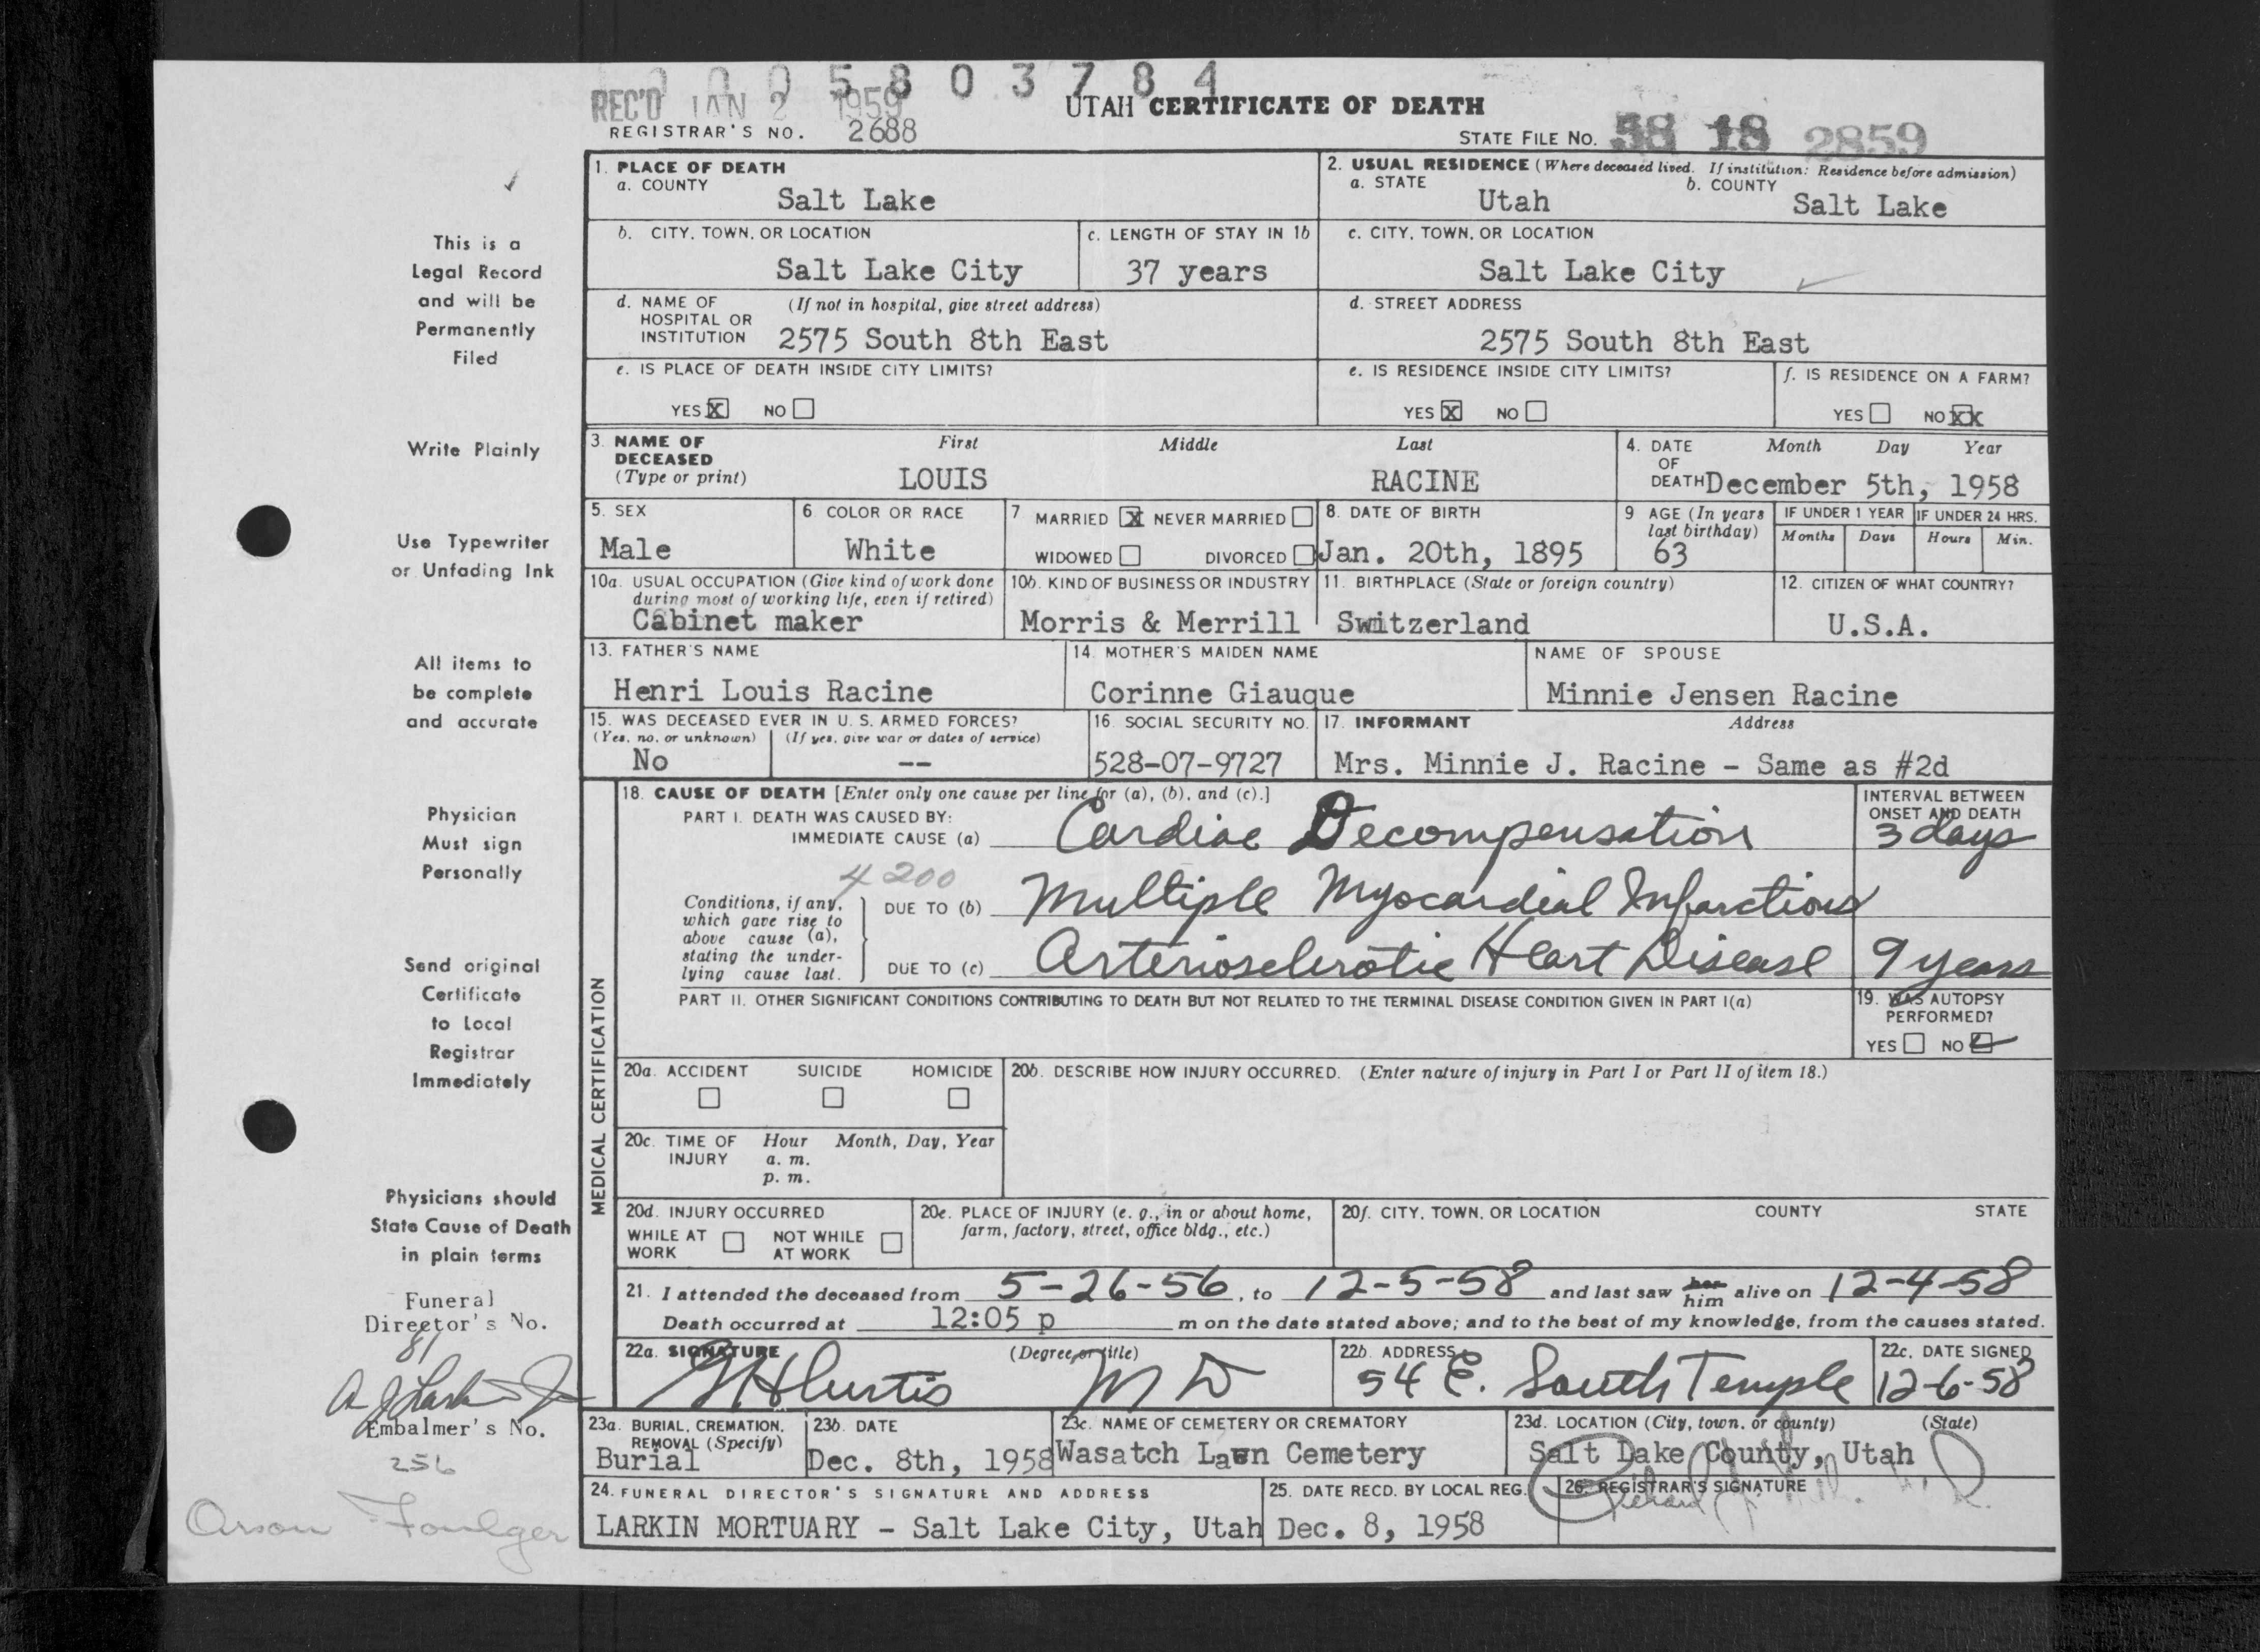 0 0 0 5 8 0 3 7 8 4
REC'D JAN 2 1959
UTAH CERTIFICATE OF DEATH
REGISTRAR'S NO. 2688
STATE FILE NO. 58 18 2859
This is a
Legal Record
and will be
Permanently
Filed
Write Plainly
Use Typewriter
or Unfading Ink
All items to
be complete
and accurate
Physician
Must sign
Personally
Send original
Certificate
to Local
Registrar
Immediately
Physicians should
State Cause of Death
in plain terms
Funeral
Director's No.
81
Embalmer's No.
256
Orson Foulger
1. PLACE OF DEATH
a. COUNTY
Salt Lake
2. USUAL RESIDENCE (Where deceased lived. If institution: Residence before admission)
a. STATE
Utah
b. COUNTY
Salt Lake
b. CITY, TOWN, OR LOCATION
Salt Lake City
c. LENGTH OF STAY IN 1b
37 years
c. CITY, TOWN, OR LOCATION
Salt Lake City
d. NAME OF (If not in hospital, give street address)
HOSPITAL OR
INSTITUTION 2575 South 8th East
d. STREET ADDRESS
2575 South 8th East
e. IS PLACE OF DEATH INSIDE CITY LIMITS?
YES X NO
e. IS RESIDENCE INSIDE CITY LIMITS?
YES X NO
f. IS RESIDENCE ON A FARM?
YES NO XX
3. NAME OF
DECEASED
(Type or print)
First Middle Last
LOUIS RACINE
4. DATE Month Day Year
OF
DEATH December 5th, 1958
5. SEX
Male
6. COLOR OR RACE
White
7 MARRIED X NEVER MARRIED
WIDOWED DIVORCED
8. DATE OF BIRTH
Jan. 20th, 1895
9 AGE (In years
last birthday)
63
IF UNDER 1 YEAR
Months Days
IF UNDER 24 HRS.
Hours Min.
10a. USUAL OCCUPATION (Give kind of work done
during most of working life, even if retired)
Cabinet maker
10b. KIND OF BUSINESS OR INDUSTRY
Morris & Merrill
11. BIRTHPLACE (State or foreign country)
Switzerland
12. CITIZEN OF WHAT COUNTRY?
U.S.A.
13. FATHER'S NAME
Henri Louis Racine
14. MOTHER'S MAIDEN NAME
Corinne Giauque
NAME OF SPOUSE
Minnie Jensen Racine
15. WAS DECEASED EVER IN U. S. ARMED FORCES?
(Yes, no, or unknown) (If yes, give war or dates of service)
No --
16. SOCIAL SECURITY NO.
528-07-9727
17. INFORMANT Address
Mrs. Minnie J. Racine - Same as #2d
MEDICAL CERTIFICATION
18. CAUSE OF DEATH [Enter only one cause per line for (a), (b), and (c).]
PART I. DEATH WAS CAUSED BY:
IMMEDIATE CAUSE (a) Cardiac Decompensation
INTERVAL BETWEEN
ONSET AND DEATH
3 days
4200
Conditions, if any,
which gave rise to
above cause (a),
stating the under-
lying cause last.
DUE TO (b) Multiple Myocardial Infarctions
DUE TO (c) Arteriosclerotic Heart Disease 9 years
PART II. OTHER SIGNIFICANT CONDITIONS CONTRIBUTING TO DEATH BUT NOT RELATED TO THE TERMINAL DISEASE CONDITION GIVEN IN PART I(a)
19. WAS AUTOPSY
PERFORMED?
YES NO
20a. ACCIDENT SUICIDE HOMICIDE
20b. DESCRIBE HOW INJURY OCCURRED. (Enter nature of injury in Part I or Part II of item 18.)
20c. TIME OF Hour Month, Day, Year
INJURY a. m.
p. m.
20d. INJURY OCCURRED
WHILE AT
WORK
NOT WHILE
AT WORK
20e. PLACE OF INJURY (e. g., in or about home,
farm, factory, street, office bldg., etc.)
20f. CITY, TOWN, OR LOCATION COUNTY STATE
21. I attended the deceased from 5-26-56, to 12-5-58 and last saw her him alive on 12-4-58
Death occurred at 12:05 p m on the date stated above; and to the best of my knowledge, from the causes stated.
22a. SIGNATURE (Degree or title)
Curtis M D
22b. ADDRESS
54 E. South Temple
22c. DATE SIGNED
12-6-58
23a. BURIAL, CREMATION,
REMOVAL (Specify)
Burial
23b. DATE
Dec. 8th, 1958
23c. NAME OF CEMETERY OR CREMATORY
Wasatch Lawn Cemetery
23d. LOCATION (City, town, or county) (State)
Salt Lake County, Utah
24. FUNERAL DIRECTOR'S SIGNATURE AND ADDRESS
LARKIN MORTUARY - Salt Lake City, Utah
25. DATE RECD. BY LOCAL REG.
Dec. 8, 1958
26. REGISTRAR'S SIGNATURE
Richard